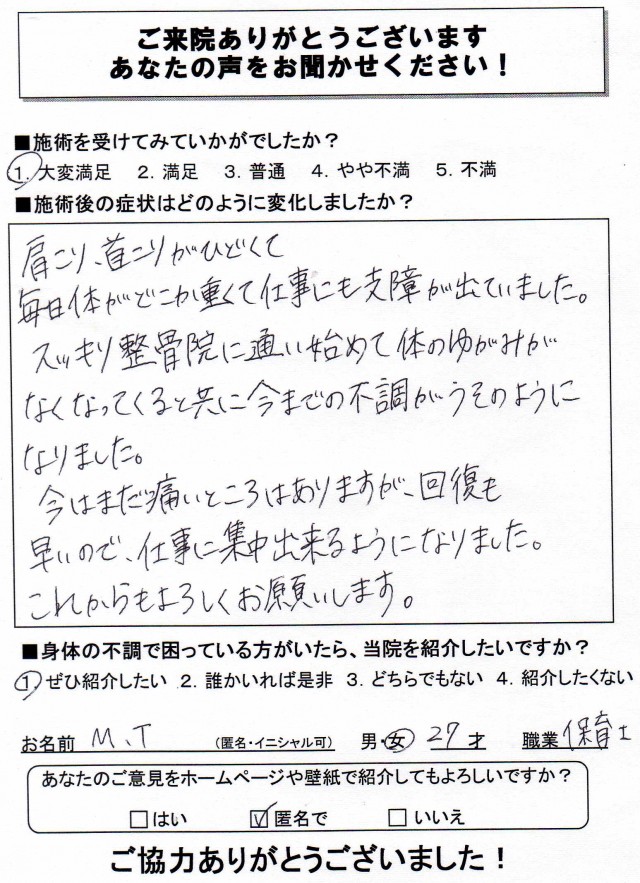 ご来院ありがとうございます
あなたの声をお聞かせください！
■施術を受けてみていかがでしたか？
1. 大変満足 2. 満足 3. 普通 4. やや不満 5. 不満
■施術後の症状はどのように変化しましたか？
肩こり、首こりがひどくて
毎日体がどこか重くて仕事にも支障が出ていました。
スッキリ整骨院に通い始めて体のゆがみが
なくなってくると共に今までの不調がうそのように
なりました。
今はまだ痛いところはありますが、回復も
早いので、仕事に集中出来るようになりました。
これからもよろしくお願いします。
■身体の不調で困っている方がいたら、当院を紹介したいですか？
1. ぜひ紹介したい 2. 誰かいれば是非 3. どちらでもない 4. 紹介したくない
お名前 M、T （匿名・イニシャル可） 男・女 27 才 職業 保育士
あなたのご意見をホームページや壁紙で紹介してもよろしいですか？
□はい ☑匿名で □いいえ
ご協力ありがとうございました！